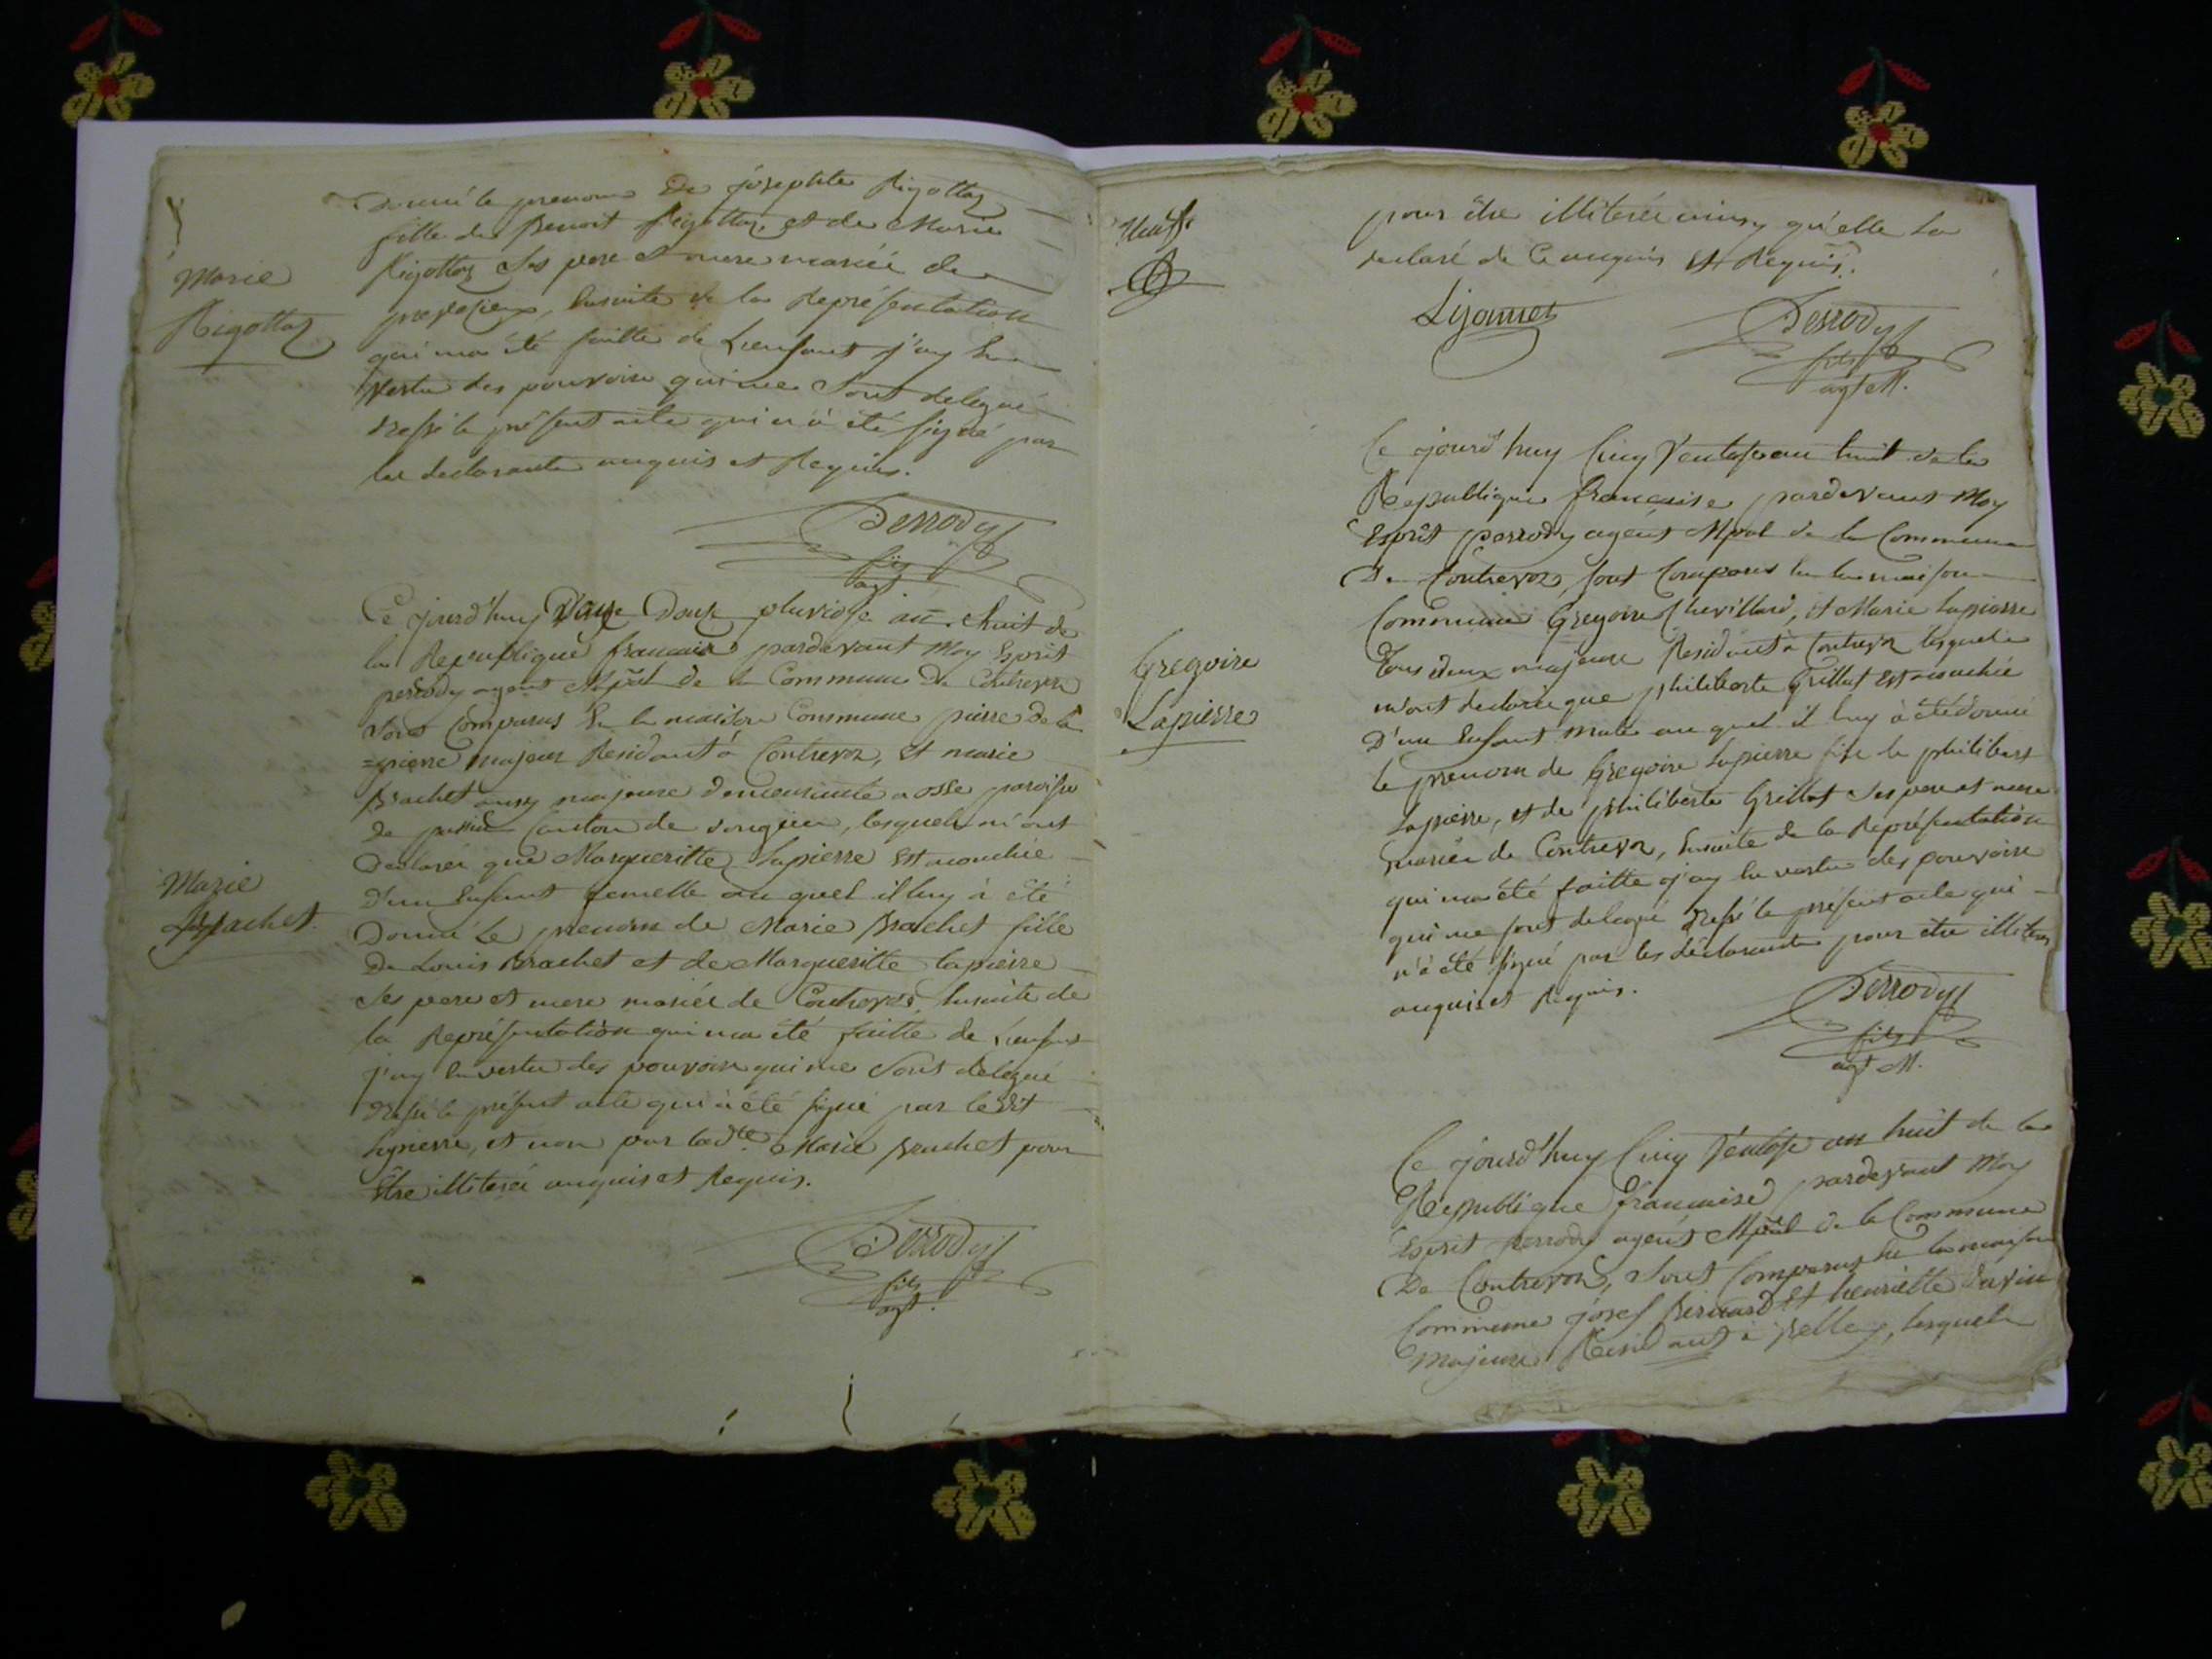 Donné le prenom De josephte Rigottaz
fille de Benoit Rigottaz et de Marie
Marie
Rigottaz Ses pere et mere mariée de
Rigottaz
Ensuite de la Représentation
qui ma été faitte de Lenfant j'ay En
vertu des pouvoirs qui me Sont delegué
dressé le présent acte qui n'à été signé par
les declarants enquis et Requis.
Perrody
fils
agt
Ce jourd'huy Douze pluviose an huit de
la Republique francaise pardevant Moy Esprit
perrody agent Mpal de la Commune De Contrevoz
Sont Comparus En la maison Commune pierre de la
=pierre majeur Residant à Contrevoz, et marie
Brachet aussy majeure demeurante a osse paroisse
de Canton de songieu, lesquels m'ont
Declarée que Margueritte Lapierre Est acouchée
d'un Enfant femelle au quel il luy à été
Marie
Brachet.
Donné Le prenom de Marie Brachet fille
De Louis Brachet et de Margueritte lapierre
Ses pere et mere mariée de Contrevoz, Ensuite de
la Représentation qui ma été faitte de Lenfant
j'ay En vertu des pouvoirs qui me Sont delegué
dressé le présent acte qui à été signé par ledit
lapierre, et non par ladte Marie Brachet pour
Etre illiterée enquis et Requis.
Perrody
fils
agt.
pour être illiterée ainsy qu'elle La
declaré de Ce enquis Et Requis.
Perrody
fils
agt M.
Ce jourd'huy Cinq Ventose an huit de la
Republique francaise pardevant Moy
Esprit perrody agent Mpal de la Commune
De Contrevoz, sont Comparus En la maison
Commune Gregoire Chevillard, et Marie Lapierre
Tous deux majeurs Residant à Contrevoz lesquels
Gregoire
Lapierre
m'ont declaré que philiberte Grillot Est acouchée
D'un Enfant male au quel il luy à été donné
le prenom de Gregoire Lapierre fils de philibert
Lapierre, et de philiberte Grillot Ses pere et mere
mariée de Contrevoz, Ensuite de la Représentation
qui ma été faitte j'ay En vertu des pouvoirs
qui me sont delegué dressé le présent acte qui
n'à été signé par les déclarants pour être illiteré
enquis et Requis.
Perrody
fils
agt M.
Ce jourd'huy Cinq Ventose an huit de la
Republique francaise pardevant Moy
Esprit perrody agent Mpal de la Commune
De Contrevoz, Sont Comparus En la maison
Commune josef Bernard Et henriette
Majeurs Residant à Belley, lesquels